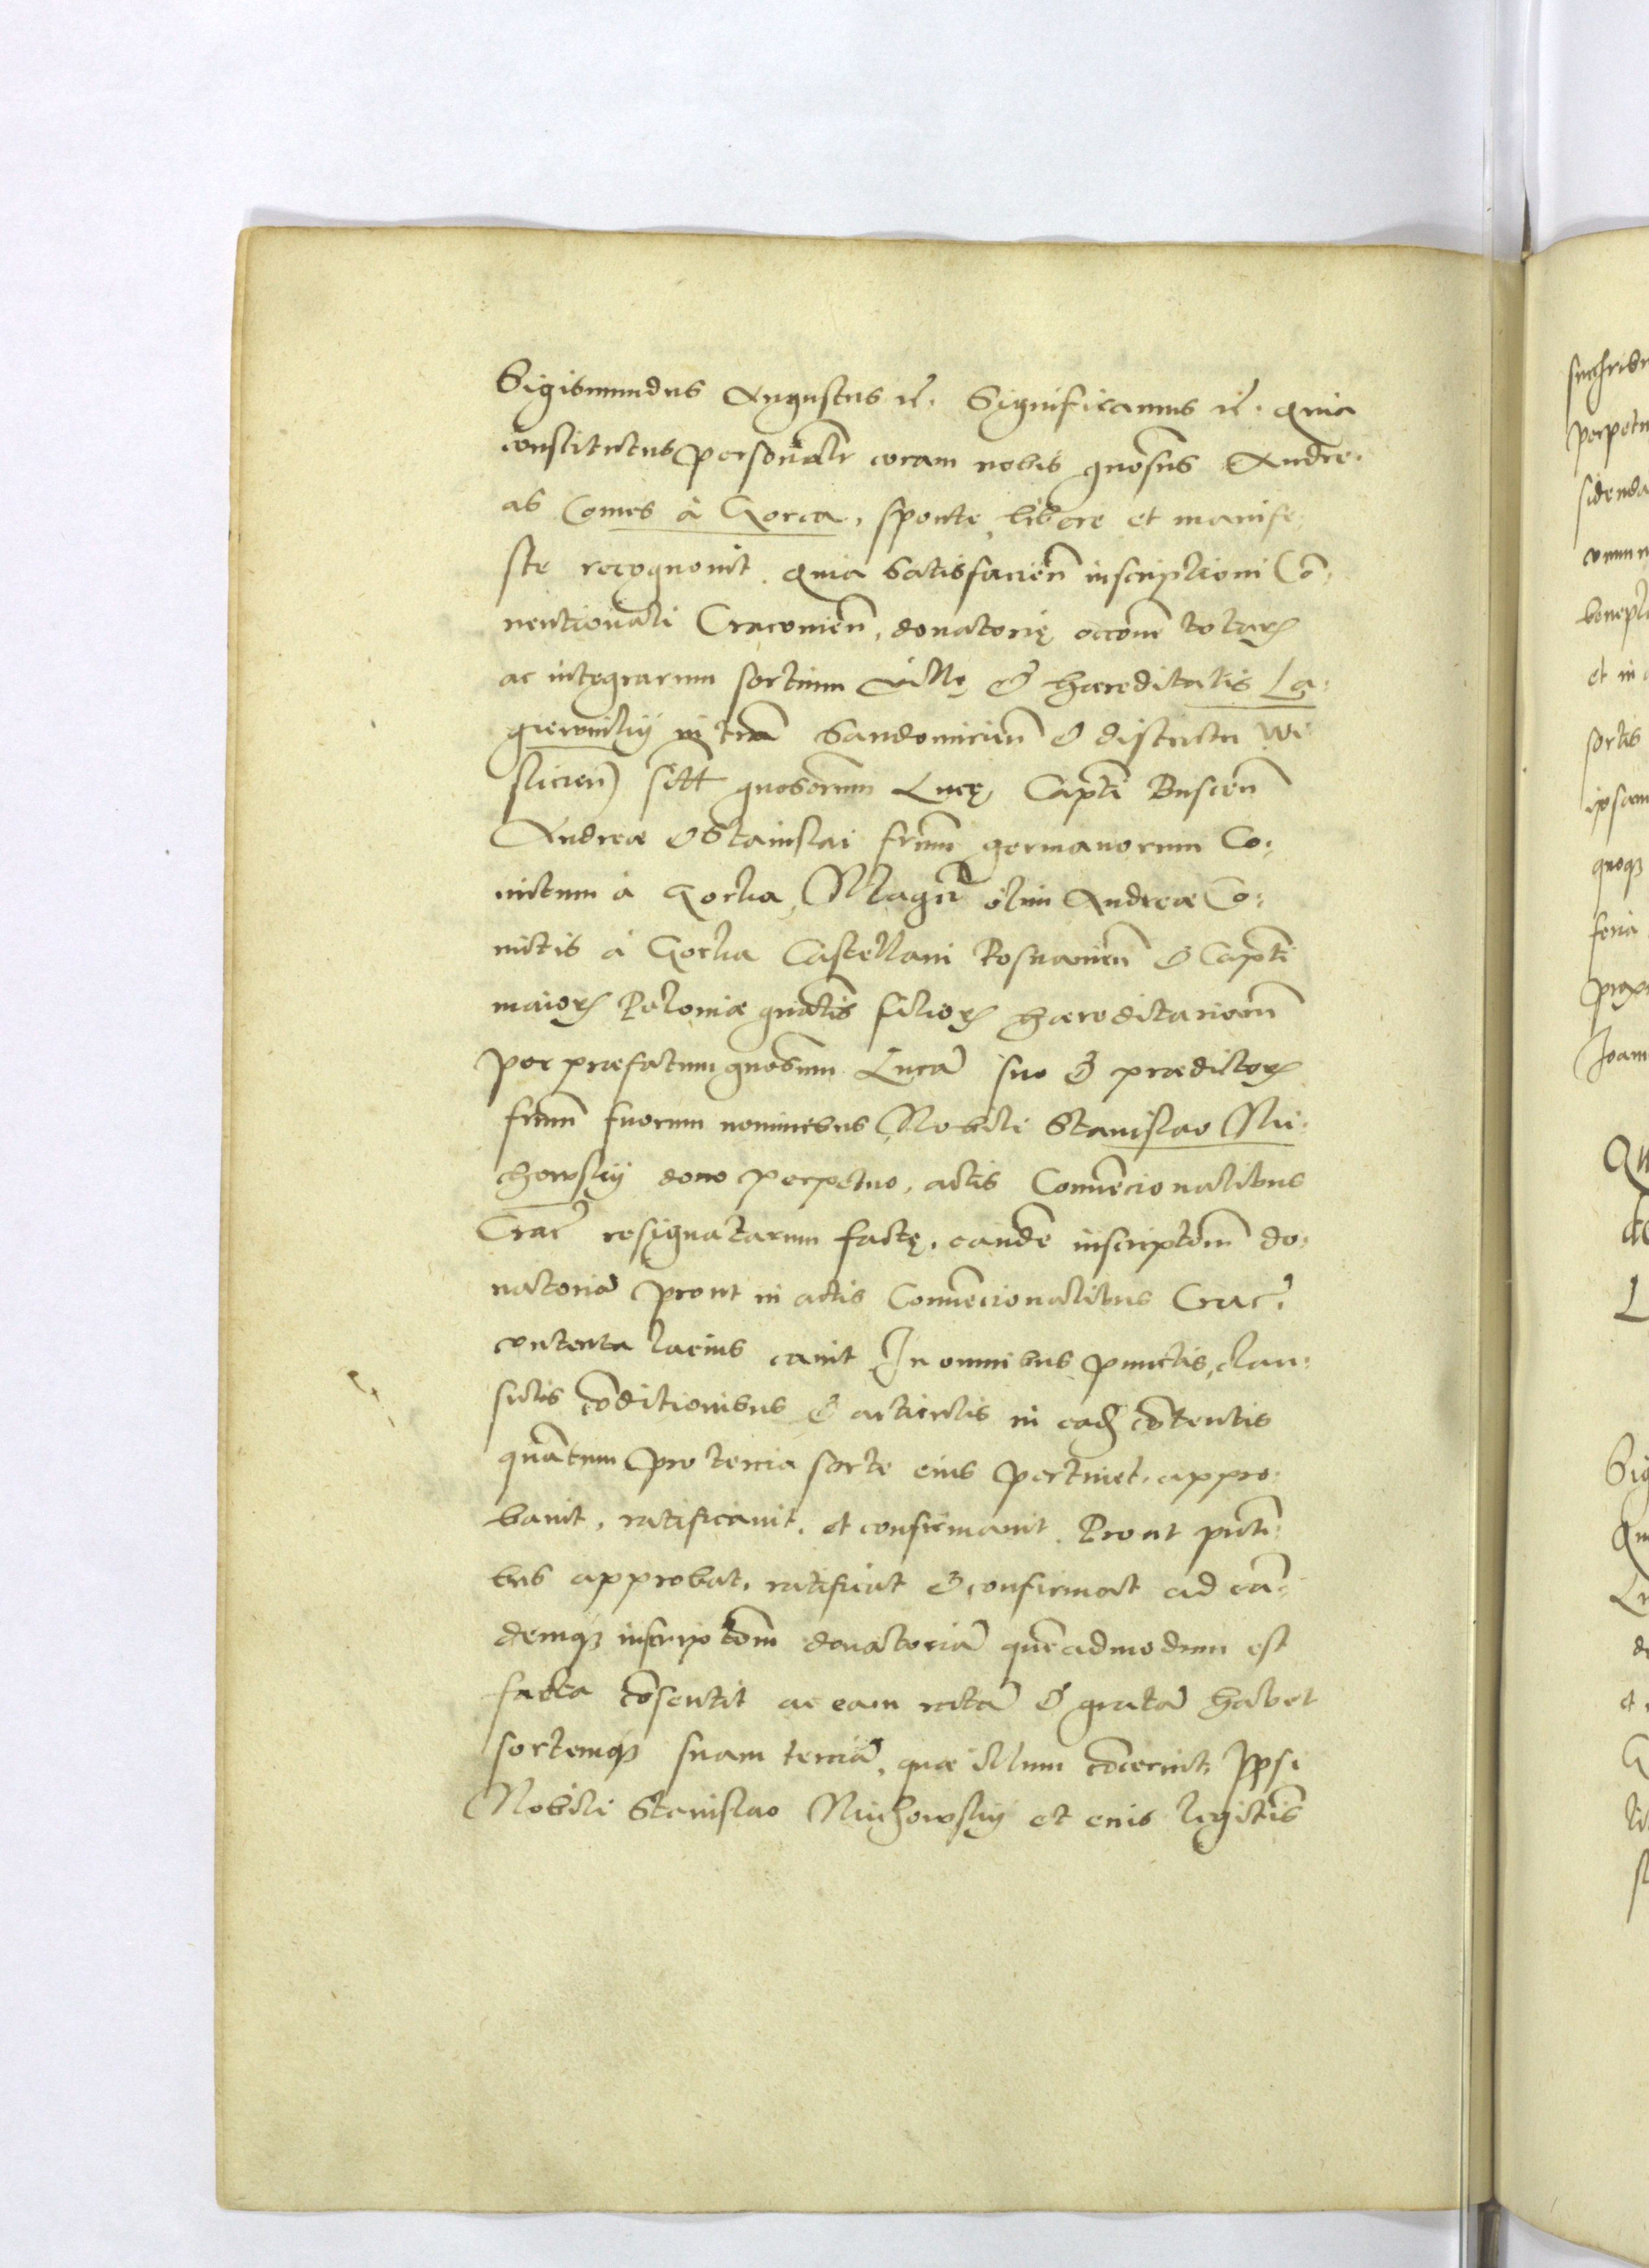 Sigismundus Augustus etc. Significamus etc. Quia
constitutus personalr coram nobis gnosus Andre-
as Comes à Gorca, sponte, libere et manife-
ste recognovit. Quia Satisfacien inscriptioni Co-
nentionali Cracovien, donatorię occone totarum
ac integrarum sortium villę & hæreditatis La-
giewniky in tra Sandomirien & districtu Wi
slicien) sitt gnosorum Lucę, Capti Buscen
Andreæ & Stanislai frum germanorum Co-
mitum à Gorka, Magci olim Andreæ Co-
mitis à Gorka Castellani Posnanien & Capti
maioris Poloniæ gnalis filiorum hæreditariorum
per præfatum gnosum Lucā suo & prædictorum
frum suorum nominibus Nobili Stanislao Mi-
chowsky dono perpetuo, actis Convēcionalibus
Crac resignatarum factę, eandē inscriptom do-
natoriā prout in actis Convēcionalibus Crac.
contenta lacius canit In omnibus punctis, clau-
sulis cōditionibus & articulis in eadem cōtentis
quātum pro tercia sorte eius pertinet, appro-
bavit, ratificavit, et confirmavit. Prout pnti-
bus approbat, ratificat & confirmat ad eā-
demque inscriptom donatoriā quēadmodum est
facta cōsentit ac eam ratā & gratā habet
sortemque suam terciā, quæ illum cōcernit, Ipsi
Nobili Stanislao Michowsky et eius legittis